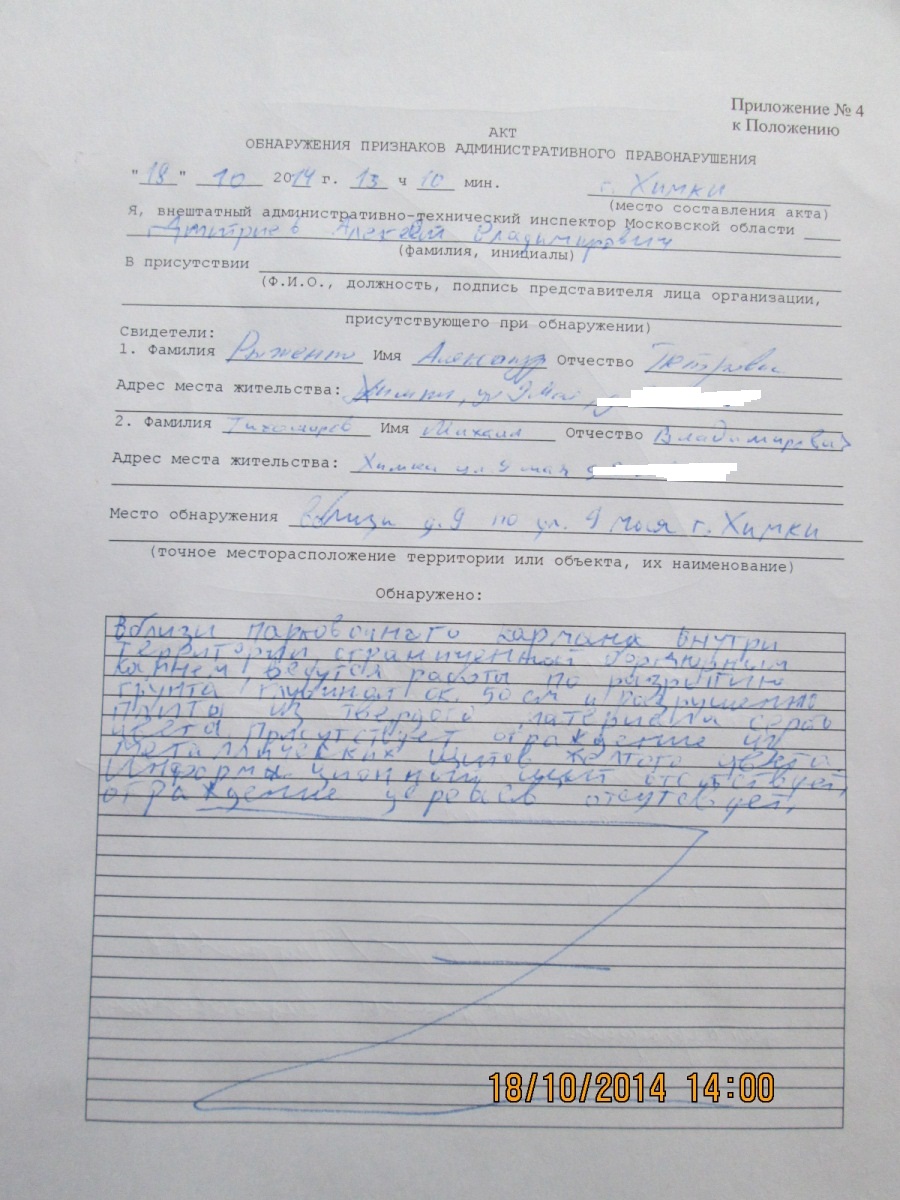 Приложение № 4
к Положению
АКТ
ОБНАРУЖЕНИЯ ПРИЗНАКОВ АДМИНИСТРАТИВНОГО ПРАВОНАРУШЕНИЯ
"18" 10 2014 г. 13 ч 10 мин. г. Химки
(место составления акта)
Я, внештатный административно-технический инспектор Московской области
Дмитриев Алексей Владимирович
(фамилия, инициалы)
В присутствии
(Ф.И.О., должность, подпись представителя лица организации,
присутствующего при обнаружении)
Свидетели:
1. Фамилия Рыженко Имя Александр Отчество Петрович
Адрес места жительства: Химки, ул 9 Мая,
2. Фамилия Тихомиров Имя Михаил Отчество Владимирович
Адрес места жительства: Химки ул. 9 мая
Место обнаружения вблизи д.9 по ул. 9 мая г. Химки
(точное месторасположение территории или объекта, их наименование)
Обнаружено:
Вблизи парковочного кармана внутри
территории ограниченной бордюрным
камнем ведутся работы по разрытию
грунта глубиной ок. 50 см и разрушению
плиты из твердого материала серого
цвета. Присутствует ограждение из
металлических щитов желтого цвета.
Информационный щит отсутствует,
ограждение деревьев отсутсвует.
18/10/2014 14:00